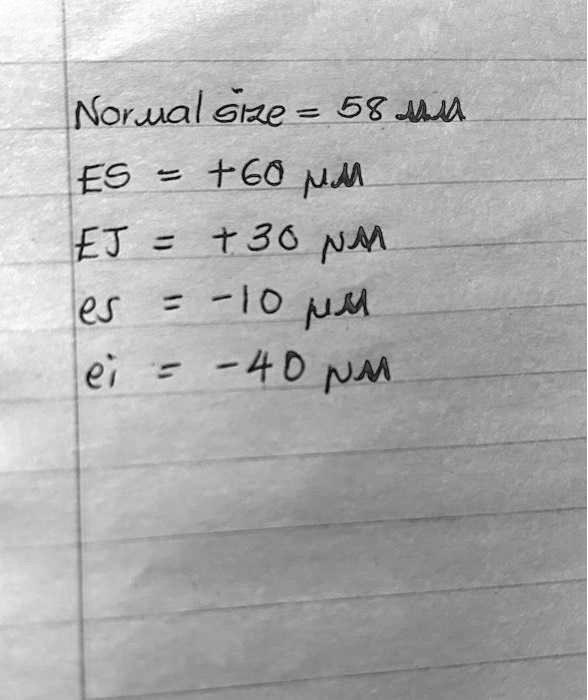 Normal size = 58 mm
ES = +60 μm
EJ = +30 μm
es = -10 μm
ei = -40 μm